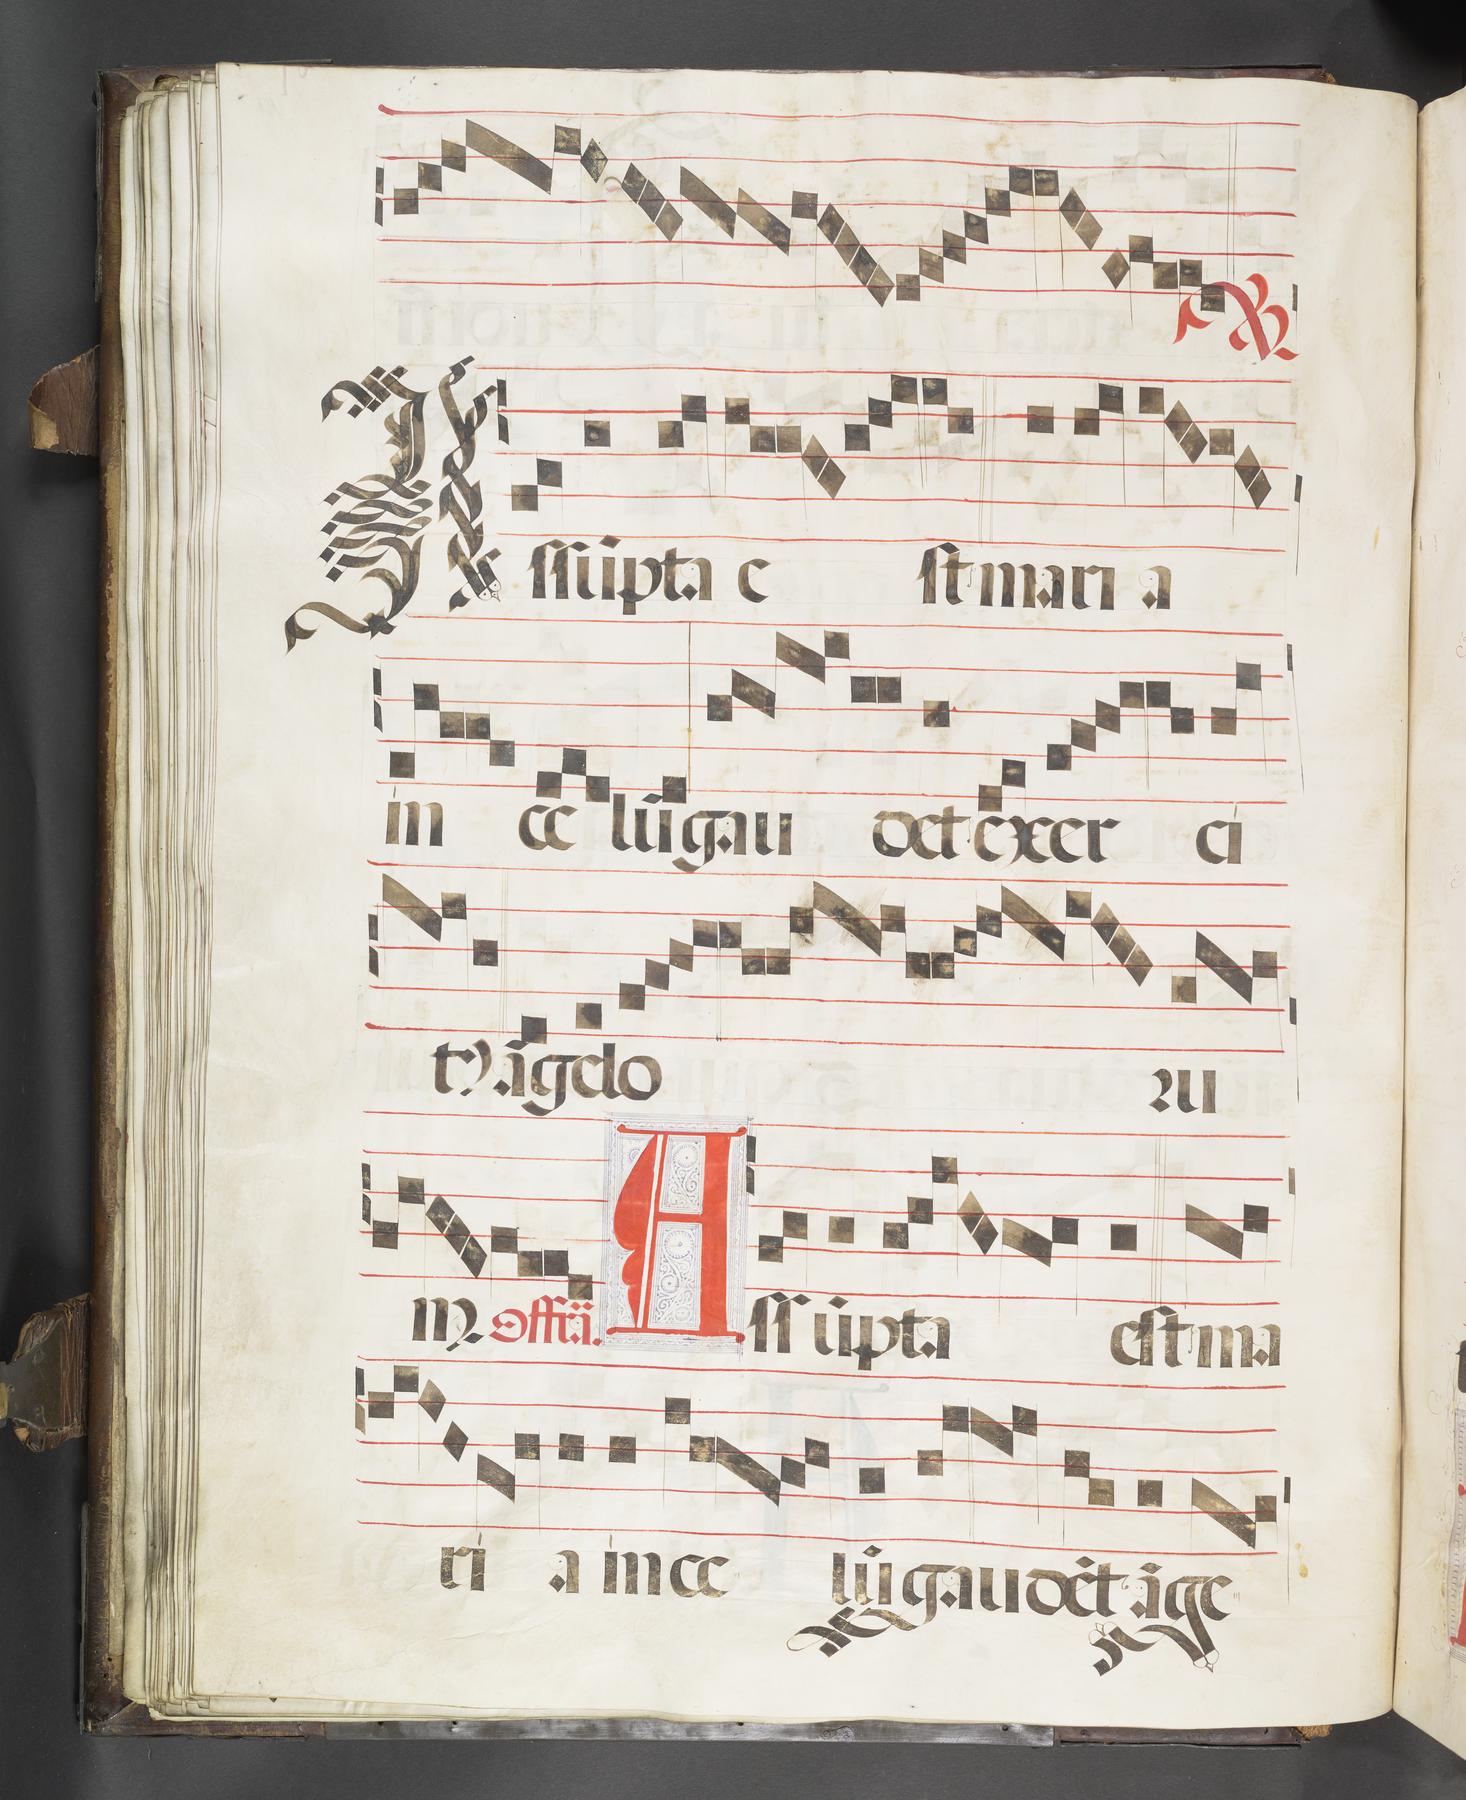 ℣.
Assūpta e st mari a
in ce lū gau det exer ci
tꝰ āgelo ꝛu
m. Offr̄i. Assūpta est ma
ri a in ce lū gaudēt āge